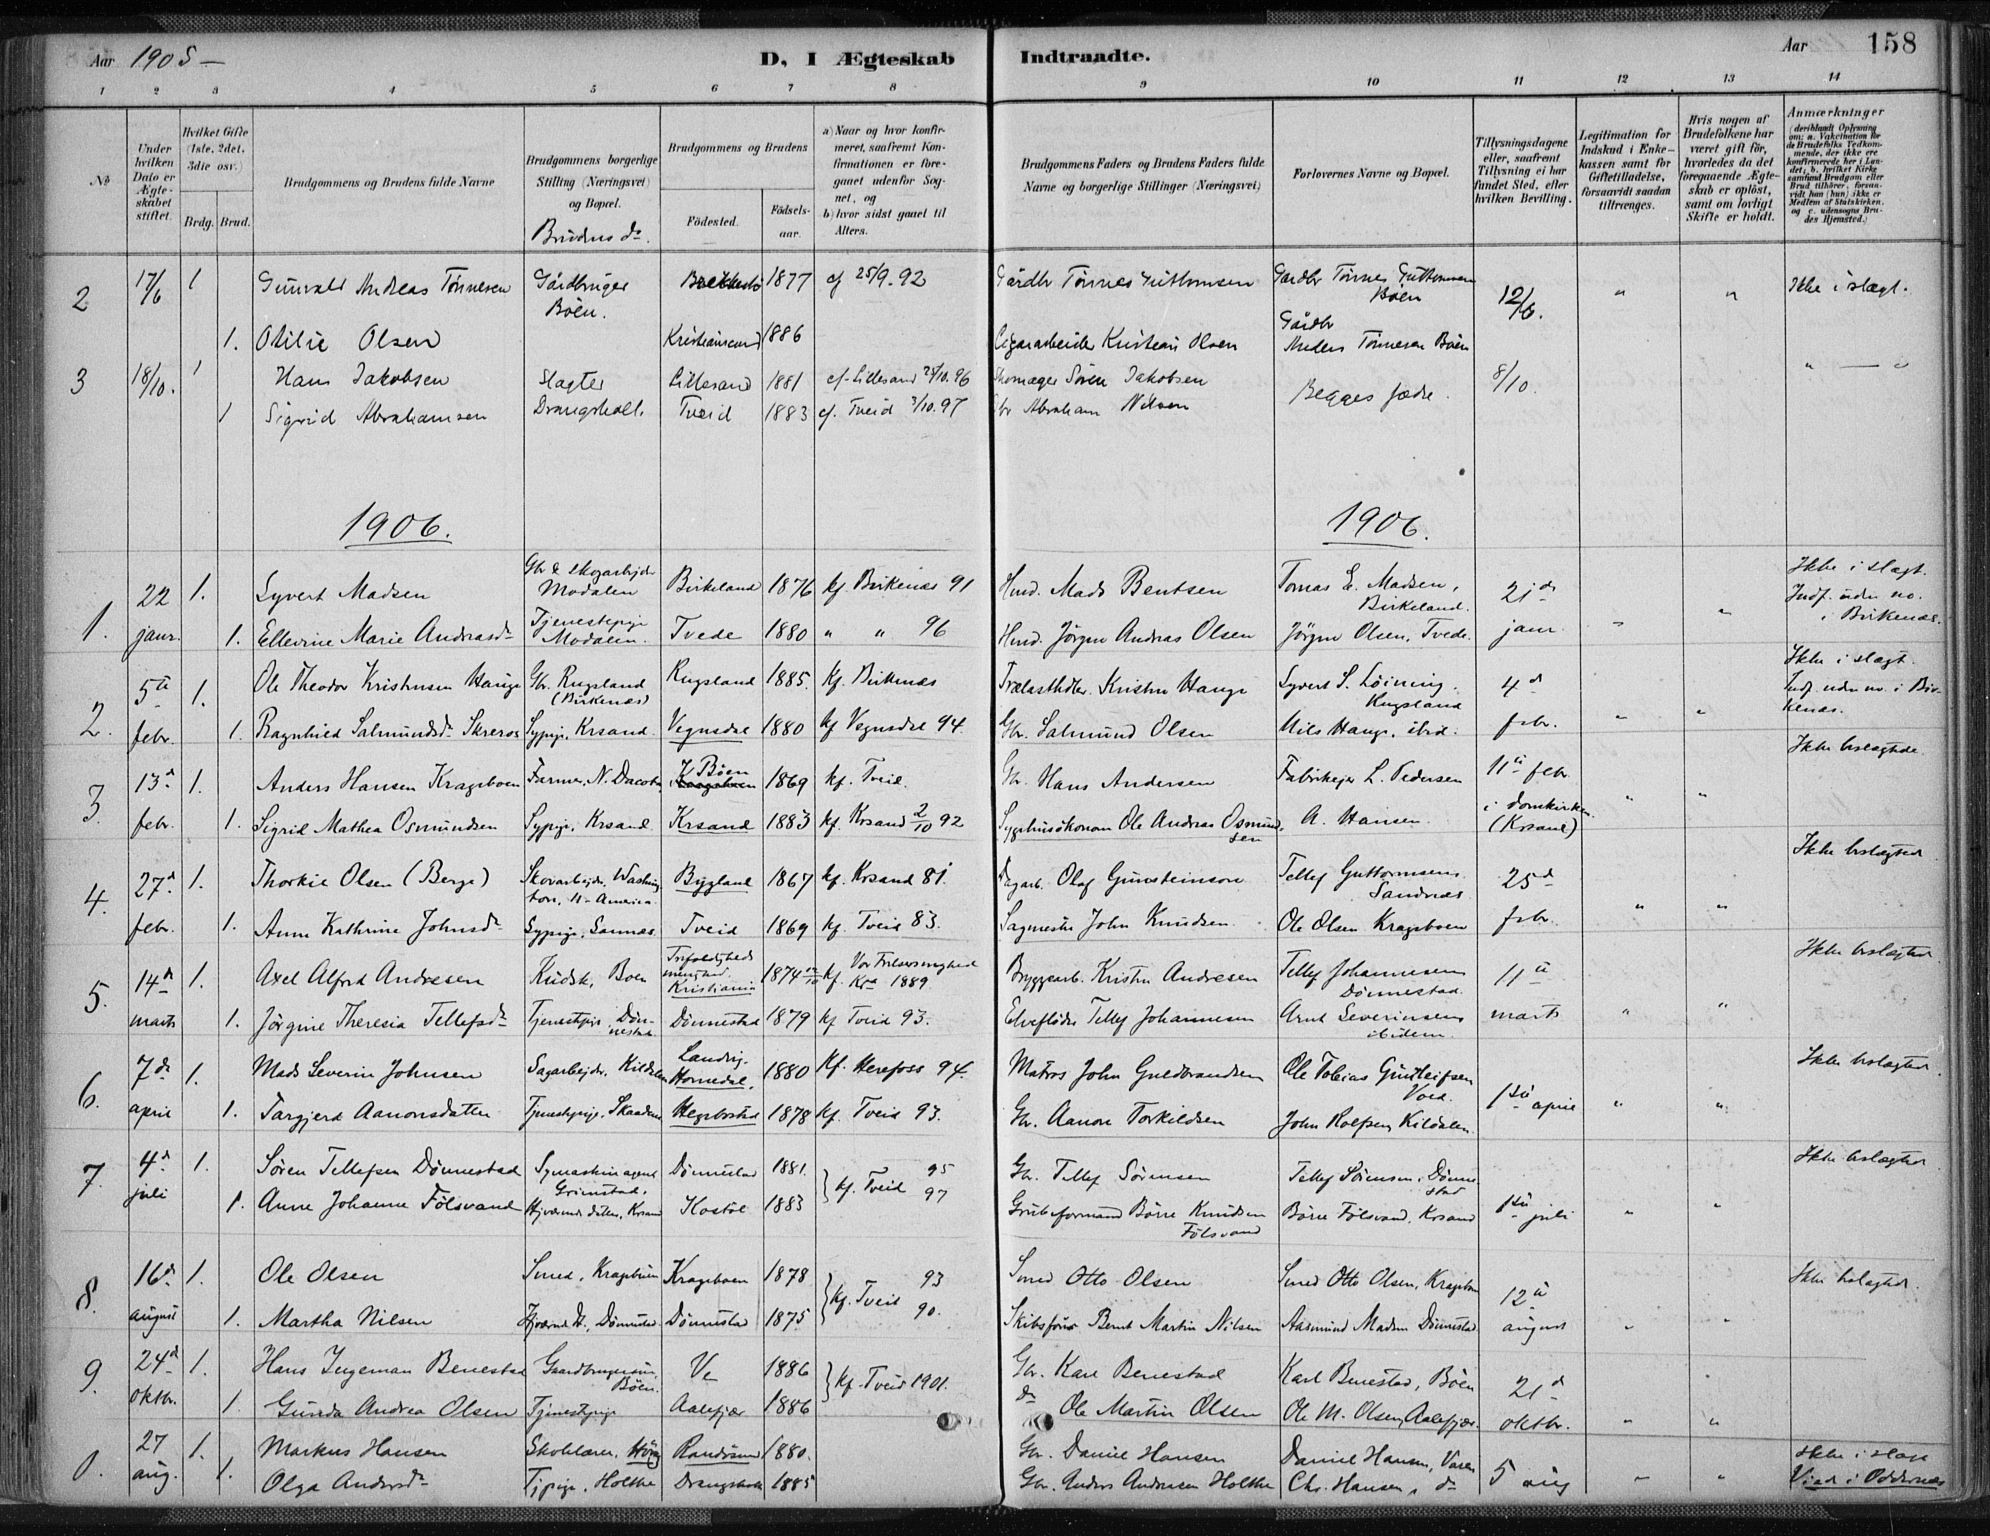 Aar 1905 — D, I Ægteskab Indtraadte. Aar 158
1 2 3 4 5 6 7 8 9 10 11 12 13 14
No
Under hvilken Dato er Ægteskabet stiftet.
Hvilket Gifte (1ste, 2det, 3die osv.) Brdg. Brud.
Brudgommens og Brudens fulde Navne
Brudgommens borgerlige Stilling (Næringsvei) og Bopæl.
Brudens do.
Brudgommens og Brudens Fødested. Fødsels-aar.
a) Naar og hvor konfirmeret, saafremt Konfirmationen er foregaaet udenfor Sognet, og
b) hvor sidst gaaet til Alters.
Brudgommens Faders og Brudens Faders fulde Navne og borgerlige Stillinger (Næringsvei)
Forlovernes Navne og Bopæl.
Tillysningsdagene eller, saafremt Tillysning ei har fundet Sted, efter hvilken Bevilling.
Legitimation for Indskud i Enkekassen samt for Giftetilladelse, forsaavidt saadan tiltrænges.
Hvis nogen af Brudefolkene har været gift før, hvorledes da det foregaaende Ægteskab er opløst, samt om lovligt Skifte er holdt.
Anmærkninger
(deriblandt Oplysning om: a. Vakcination for de Brudefolks Vedkommende, der ikke ere konfirmerede her i Landet; b. hvilket Kirkesamfund Brudgom eller Brud tilhører, forsaavidt han (hun) ikke er Medlem af Statskirken, og c. udensogns Brudes Hjemsted.)
2 17/6 1 Gunvald Andreas Tønnesen Gårdbruger Böen. 1877 cf 25/9.92 Gårdbr Tønnes Guttormsen Gardbr Tønnes Guttormsen Böen 12/6. " " Ikke i slægt.
1. Otilie Olsen Kristiansand 1886 Cigararbeider Kristian Olsen Gårdbr Anders Tønnesen Böen
3 18/10. 1 Hans Jakobsen Slagter Lillesand 1881 cf. Lillesand 25/10.96 Skomager Søren Jakobsen Begges fædre. 8/10. " — "
1 Sigrid Abrahamsen Drangsholt. Tveid 1883 cf. Tveid 3/10.97 Gbr Abraham Nilsen
1906. 1906.
1. 22 janr. 1. Syvert Madsen Gbr & skogarbejdr Modalen Birkeland 1876 kf. Birkenæs 91 Husd. Mads Bentsen Tomas E. Madsen, Birkeland. 21de janr. " " Ikke i slægt. Indf. uden no. i Birkenæs.
1. Ellevine Marie Andreasdr Tjenestepige Modalen. Tvede 1880 " " 96 Husd. Jörgen Andreas Olsen Jörgen Olsen, Tvede.
2. 5te febr. 1. Ole Theodor Kristensen Hauge Gbr. Rugsland (Birkenæs) Rugsland 1885. kf. Birkenæs Trælasthdlr. Kristen Hauge Syvert S. Löining, Rugsland 4de febr. " " Ikke i slægt. Indf. uden no. i Birkenæs.
1. Ragnhild Salmundsdr Skreros Sypige, Krsand. Vegusdal 1880 kf Vegusdal 94. Gbr. Salmund Olsen Nils Hauge, ibid.
3. 13de febr. 1. Anders Hansen Kragsboen Farmer, N. Dacota K Böen 1869 kf. Tveid. Gbr. Hans Andersen Fabrikejer L. Pedersen 11te febr. i domkirken (Krsand) " " Ikke beslægtede
1. Sigrid Mathea Osmundsen Sypige, Krsand. Krsand 1883 kf. Krsand 2/10 92 Sygehusökonom Ole Andreas Osmundsen A. Hansen.
4. 27de febr. 1. Thorkil Olsen (Berge) Skovarbejdr, Washington, N-America. Bygland 1867 kf. Krsand 81. Dagarb. Olaf Gunsteinson Tellef Guttormsen, Sandnæs 25de febr. " " Ikke beslægted.
1. Anne Kathrine Johnsdr Sypige, Sannæs. Tveid 1869 kf. Tveid 83. Sagmester John Knudsen. Ole Olsen Kragsboen
5. 14de marts 1. Axel Alfred Andresen Kudsk, Boen Trefoldigheds menighed. Kristiania 1874 kf. Vor Frelsersmenighed Kra 1889 Bryggearb. Kristen Andresen Tellef Johannesen Dönnestad. 11te marts " " Ikke beslægted.
1. Jörgine Theresia Tellefsdr Tjenestepige Dönnestad. Dönnestad 1879 kf Tveid 93. Elveflöder Tellef Johannesen Arnt Severinsen ibidem.
6. 7de april 1. Mads Severin Johnsen Sagarbejdr, Kildalen Landvig, Homedal. 1880 Kf. Herefoss 94. Matros John Guldbrandsen Ole Tobias Gunleifsen Voed. 1ste april " " Ikke beslægted.
1. Targjerd Aanonsdatter Tjenestepige, Hegebostad 1878 kf. Tveid 93. Gbr. Aanon Torkildsen John Rolfsen, Kildalen.
7. 4de juli 1. Sören Tellefsen Dönnestad Symaskinagent Grimstad. Dönnestad 1881. kf. Tveid 95 Gbr. Tellef Sörensen Tellef Sörensen, Dönnestad 1ste juli " " Ikke beslægted.
1. Anne Johanne Fölsvand Hjværende datter, Krsand Kostöl 1883 97 Grubeformand Börre Knudsen Fölsvand Börre Fölsvand, Krsand
8. 16de august 1. Ole Olsen Smed, Kragsboen Kragsboen 1878 kf. Tveid 93 Smed Otto Olsen Smed Otto Olsen, Kragsboen 12te august " " Ikke beslægted.
1. Martha Nilsen Hjværende D., Dönnestad Dönnestad 1875 90. Skibsförer Bernt Martin Nilsen Aasmund Madsen Dönnestad
9. 24de oktbr. 1. Hans Ingeman Benestad Gaardbrugersön, Böen. Ve 1886 kf. Tveid 1901. Gbr. Karl Benestad Karl Benestad, Böen 21de oktbr. " "
1. Gunda Andrea Olsen Tjenestepige Aalefjær 1886 do Ole Martin Olsen Ole M. Olsen, Aalefjær.
0. 27 aug. 1. Markus Hansen Skolelærer, Randösund 1880. Gbr. Daniel Hansen Daniel Hansen, 5 aug " " Ikke i slægt Viet i Oddernæs
1. Olga Andersdr Tjpige, Holthe Drangsholt 1885 Gbr. Anders Andresen Holthe Chr. Hansen, do